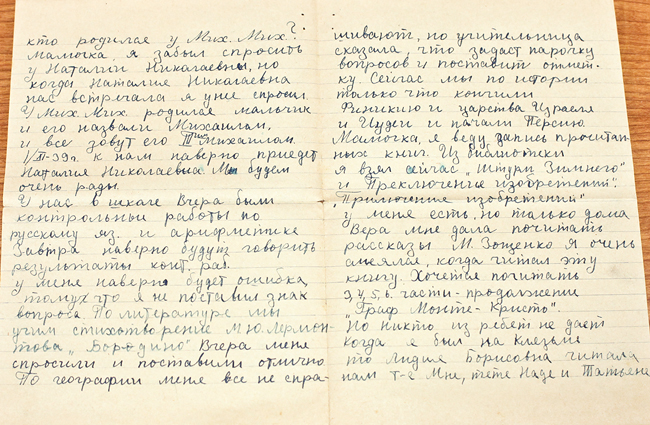 кто родилае у Мих. Мих.?
Мамочка, я забыл спросить
у Наталии Николаевны, но
когда Наталие Николаевна
нас встречала я уже спросил.
У Мих. Мих. родилае мальчик
и его назвали Михаилам,
и все зовут его III тий Михаилам.
1/II-39 г. к нам наверно приедет
Наталие Николаевна. Мы будем
очень рады.
У нас в школе Вчера были
контрольные работы по
русскому яз. и арифметике
Завтра наверно будут говорить
результаты конт. раб.
у меня наверно будет ошибка,
томучто я не поставил знак
вопроса. По литературе мы
учим стихотворение М.Ю.Лермон-
това „Бородино" Вчера меня
спросили и поставили отлично.
По географии меня все не спра-
шивают, но учительница
сказала, что задаст парочку
вопросов и поставит отмет-
ку. Сейчас мы по истории
только что кончили
Финикию и царства Израеля
и Иудеи и начали Персию
Мамочка, я веду запись прочитан-
ных книг. Из библиотеки
я взял сейчас „Штурм Зимнего"
и „Преключение изобретений".
„Приключение изобретений"
у меня есть, но только дома
Вера мне дала почитать
рассказы М. Зощенко Я очень
смеялае, когда читал эту
книгу. Хочется почитать
3, 4, 5, 6. части - продолжение
„Граф Монте-Кристо".
Но никто из ребят не дает
когда я был на Клязьме
то Лидия Борисовна читала
нам т-е мне, тете Наде и Татьяне